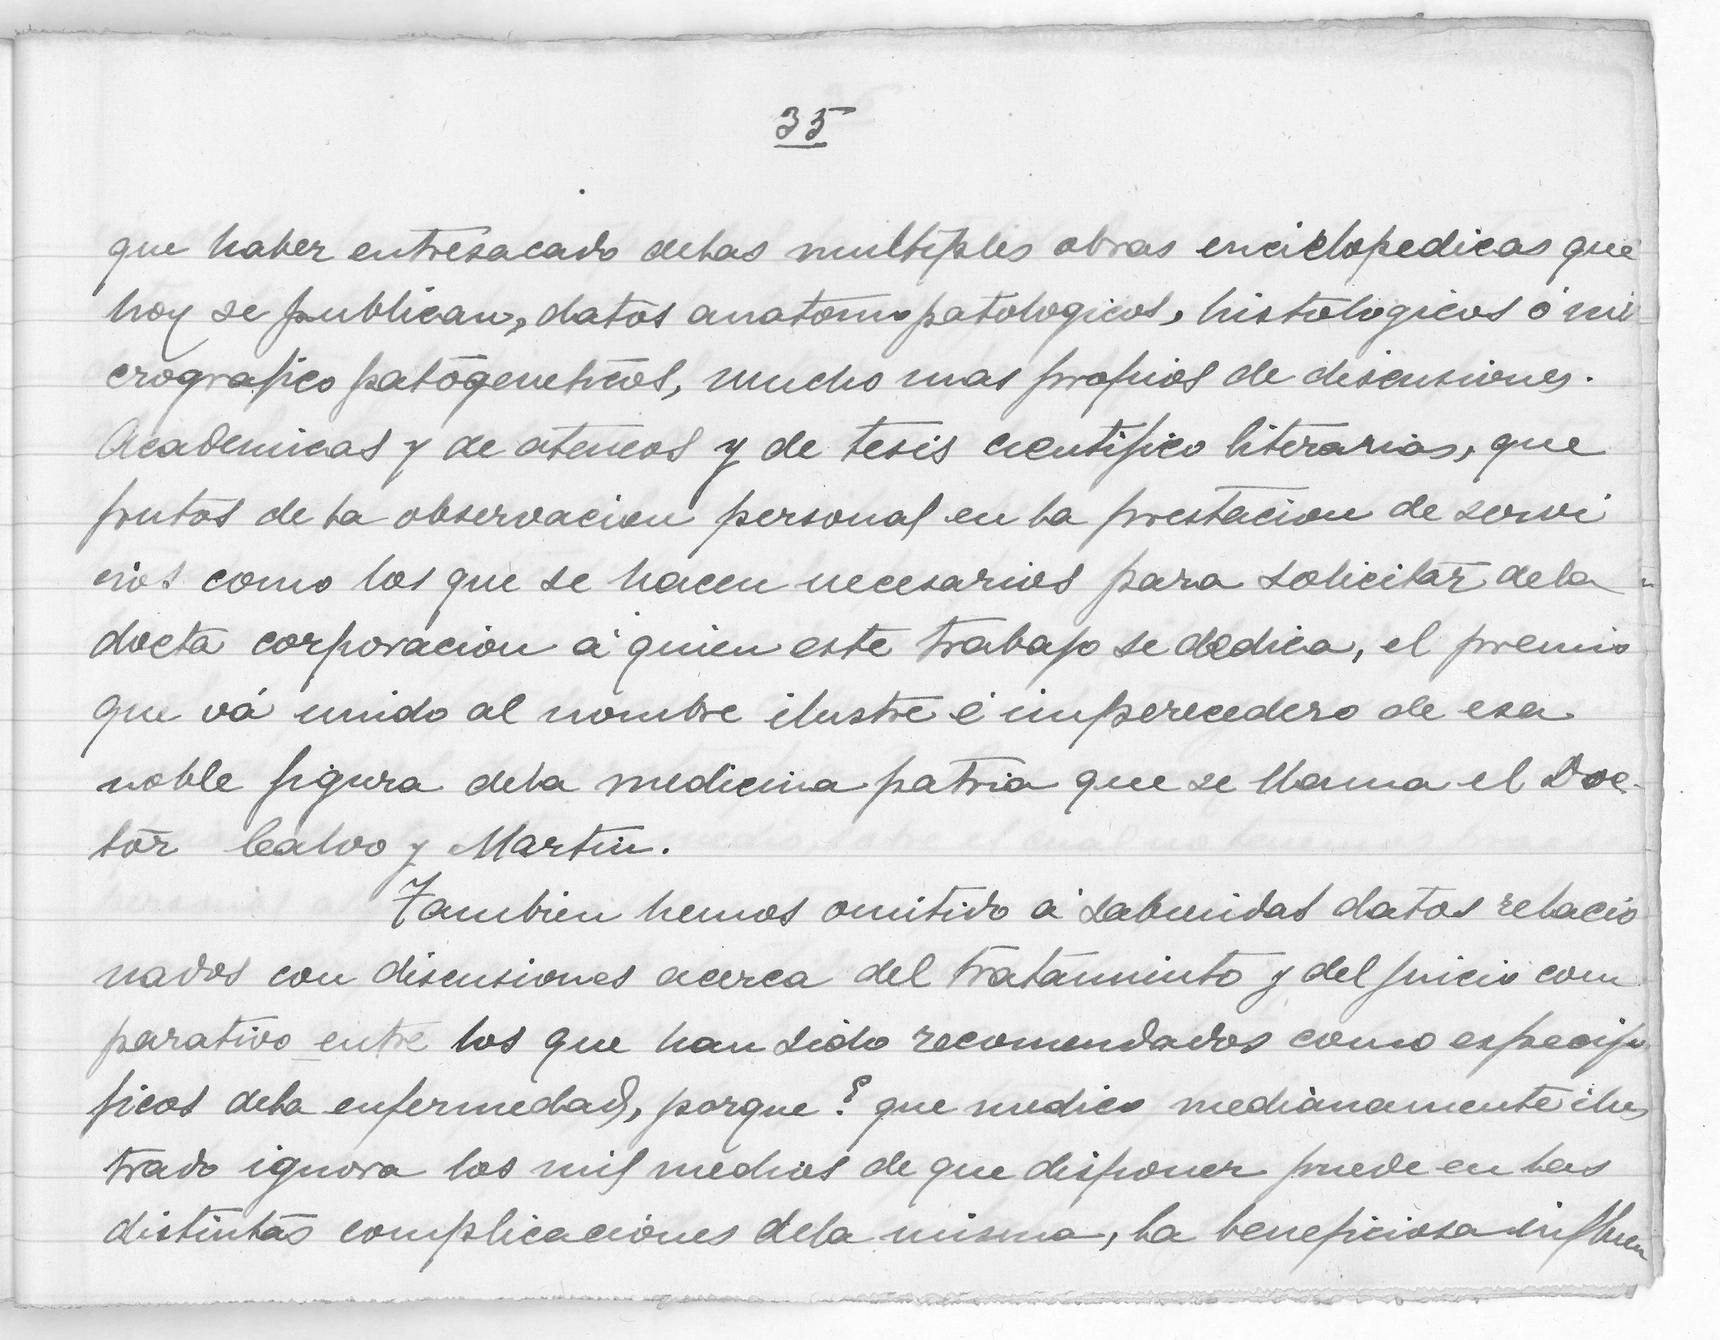 35
que haber entresacado delas multiples obras enciclopedicas que
hoy se publican, datos anatomo patologicos, histologicos ó mi
crografico patogeneticos, mucho mas propios de discusiones.
Academicas y de ateneos y de tesis cientifico literarias, que
frutos de la observacion personal en la prestacion de servi
cios como los que se hacen necesarios para solicitar dela
docta corporacion á quien este trabajo se dedica, el premio
que vá unido al nombre ilustre é imperecedero de esa
noble figura dela medicina patria que se llama el Doc-
tor Calvo y Martin.
Tambien hemos omitido á sabiendas datos relacio
nados con discusiones acerca del tratamiento y del juicio com
parativo entre los que han sido recomendados como especifi
ficos dela enfermedad, porque ¿ que medico medianamente ilus
trado ignora los mil medios de que disponer puede en las
distintas complicaciones dela misma, la beneficiosa influen